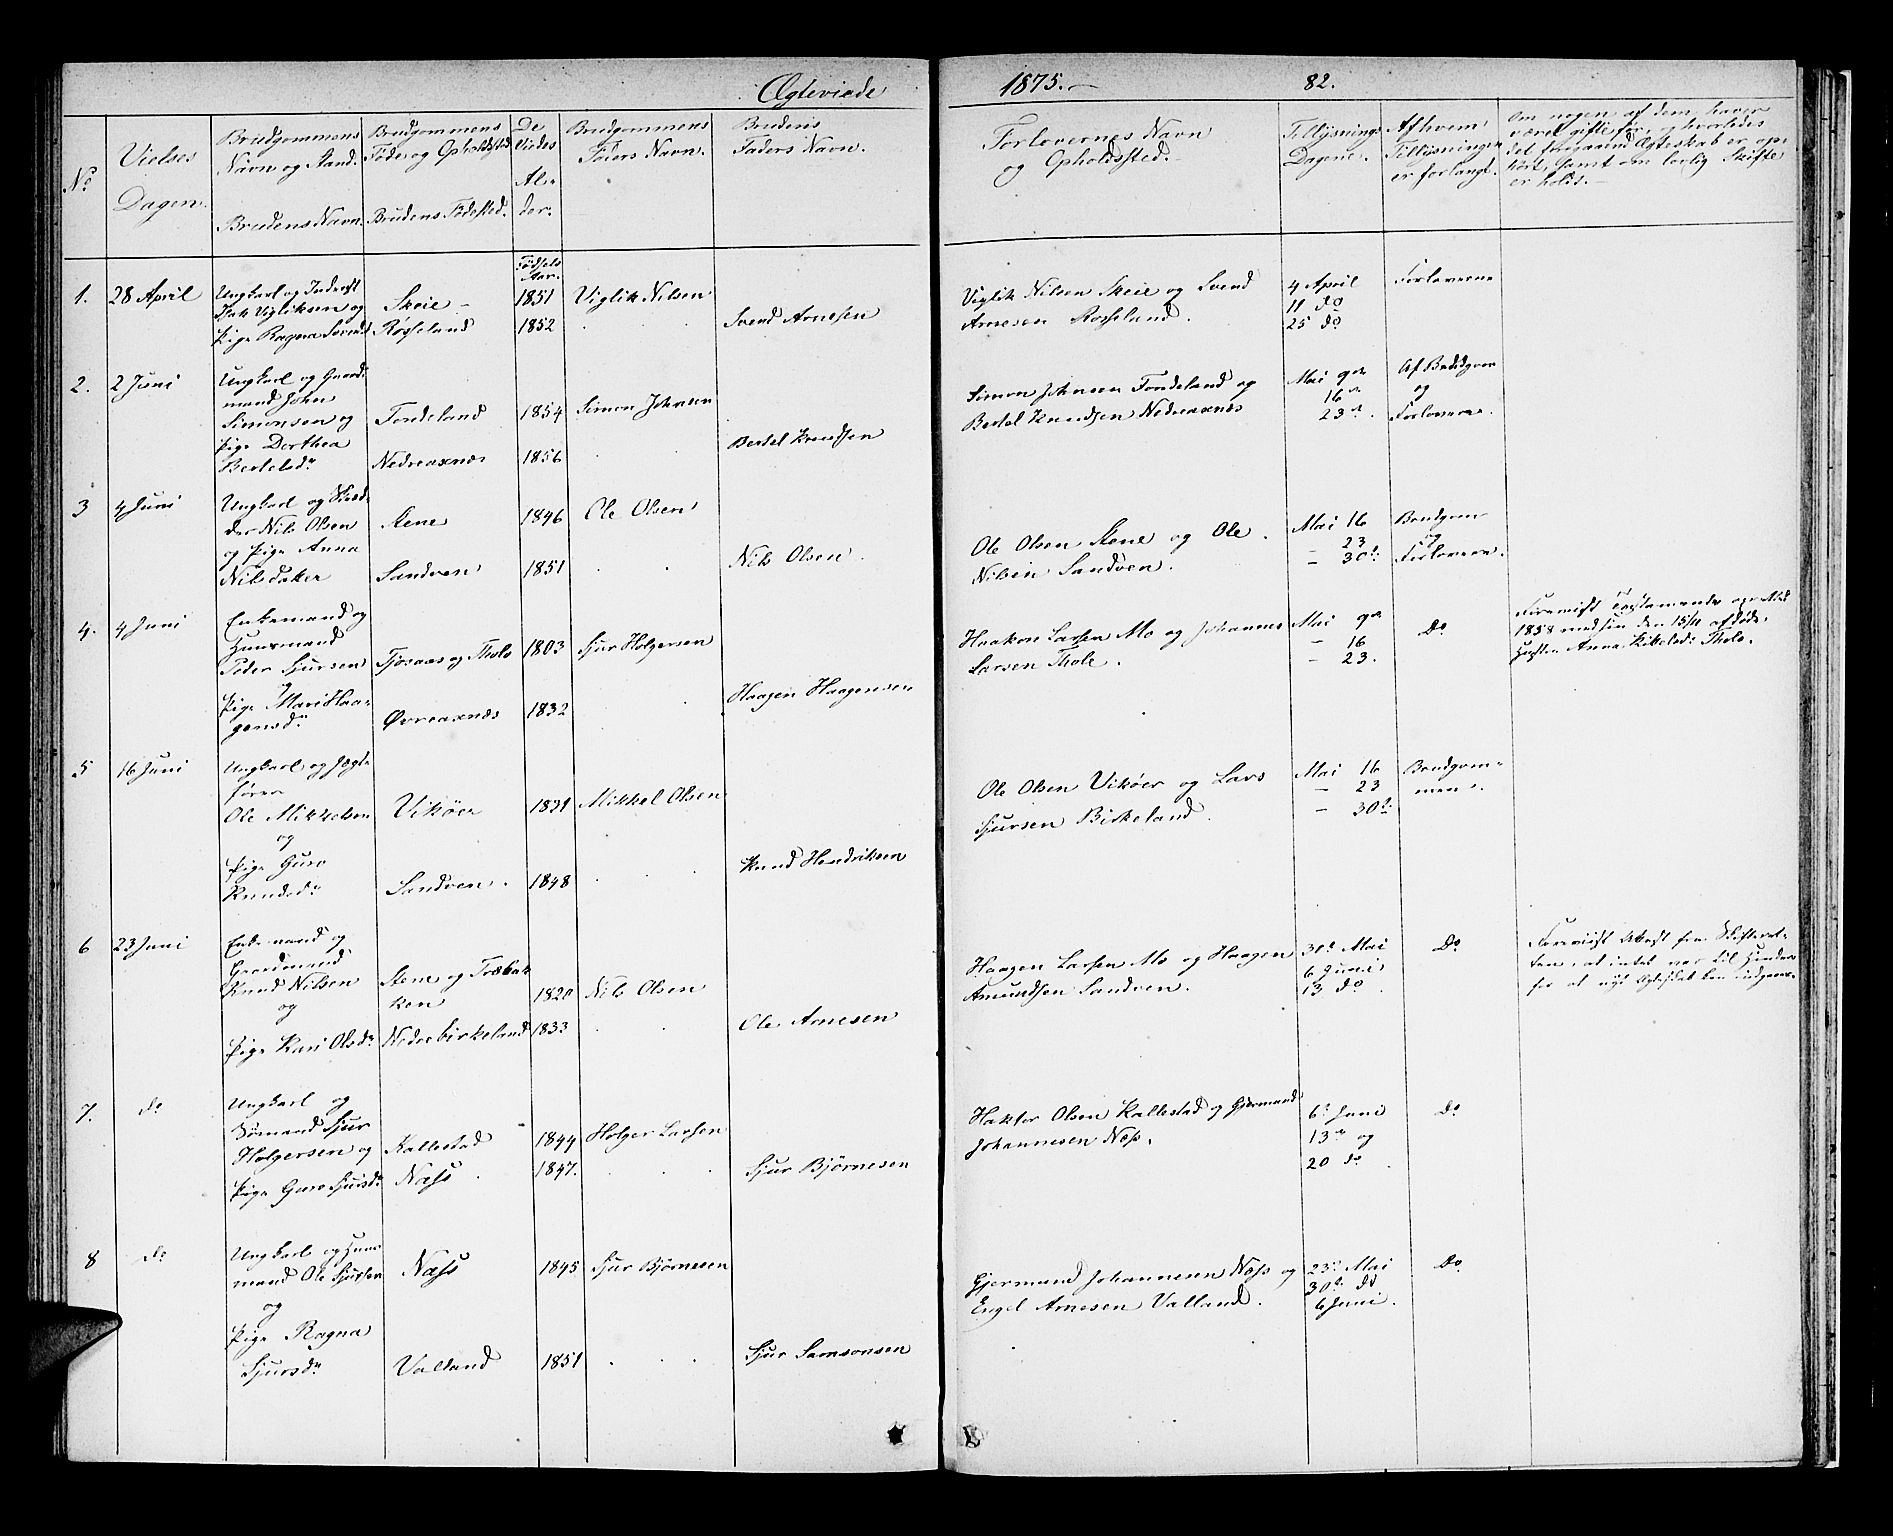 Ægteviede 1875. 82.
No
Vielses Dagen.
Brudgommens Navn og Stand.
Brudens Navn.
Brudgommens Føde og Opholdsted
Brudens Fødested.
De Viedes Alder.
Brudgommens Faders Navn.
Brudens Faders Navn.
Forlovernes Navn og Opholdssted.
Tillysnings Dagene.
Af hvem Tillysningen er forlangt.
Om nogen af dem haver
været gifte før, og hvorledes
det foregaaend Ægteskab er op-
hørt, samt om lovlig Skifte
er holdt.
Fødsels Aar.
1. 28 April
Ungkarl og Vigliksen og
Pige Ragna Svendsd
Skeie
Rosseland
1851
1852
Viglik Nilsen
Svend Arnesen
Viglik Nilsen Skeie og Svend
Arnesen Rosseland.
4 April
11 do
25 do
Forloverne
2. 2 Juni
Ungkarl og Gaard
mand John
Simonsen og
Pige Dorthea
Bertelsdr
Tondeland
Nedreaxnes
1854
1856
Simon Johnsen
Bertel Knudsen
Simon Johnsen Tondeland og
Bertel Knudsen Nedreaxnes
Mai 9de
16de
23de.
Af Brudgom
og
Forloverne.
3 4 Juni
Ungkarl og Skræd-
der Nils Olsen
og Pige Anna
Nilsdatter
Stene
Sandven
1846
1851
Ole Olsen
Nils Olsen
Ole Olsen Stene og Ole
Nilsen Sandven.
Mai 16
23
– 30te
Brudgom
og
Forloverne.
4. 4 Juni
Enkemand og
Huusmand
Peder Sjursen
og
Pige Mari Haa-
gensdr
Tjosaas og Thole
Øvreaxnæs
1803
1832
Sjur Holgersen
Haagen Haagensen
Haakon Larsen Mo og Johannes
Larsen Thole.
Mai 9de
– 16
– 23.
Do
Forevist Testamente oprettet
1858 med sin den 15/11 afdøde
Hustru Anna Thole.
5 16 Juni
Ungkarl og Jægte-
fører
Ole Mikkelsen
og
Pige Guro
Knudsdr
Vikøer
Sandven.
1839
1848
Mikkel Olsen
Knud Hendriksen
Ole Olsen Vikøer og Lars
Sjursen Birkeland.
Mai 16
– 23
– 30te
Brudgom-
men.
6 23 Juni
Enkemand og
Gaardmand
Knud Nilsen
og
Pige Kari Olsdr
Stene og Træbak
ken
Nedrebirkeland
1820
1833
Nils Olsen
Ole Arnesen
Haagen Larsen Mo og Haagen
Amundsen Sandven.
30te Mai
6 Juni
13 do
Do
Foreviist Attest fra Skifteret-
ten, at intet var til Hinder
for at nyt Ægteskab kan indgaaes
7. do
Ungkarl og
Sømand Sjur
Holgersen og
Pige Guro Sjursdr
Kallestad
Næss
1844
1847.
Holger Larsen
Sjur Bjørnesen
Haktor Olsen Kallestad og Gjermund
Johannesen Næs.
6te Juni
13de og
20 do
Do
8 do
Ungkarl og Huus
mand Ole Sjursen
og
Pige Ragna
Sjursdr
Næss
Valland
1845
1851
Sjur Bjørnesen
Sjur Samsonsen
Gjermund Johannesen Næs og
Engel Arnesen Valland.
23de Mai
30te do
6 Juni.
Do